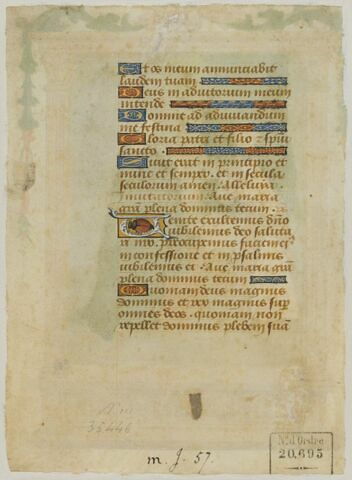 Et os meum annunciabit
laudem tuam
Deus in adiutorium meum
intende
Domine ad adiuvandum
me festina
Gloria patri et filio et spiri
sancto
Sicut erat in principio et
nunc et semper. et in secula
seculorum amen. Alleluia.
Invitatorium. Ave maria
gra plena dominus tecum.
Venite exultemus dno
iubilemus deo saluta
ri nro. preocupemus faciem ei
in confessione et in psalmis
iubilemus ei. Ave maria gra
plena dominus tecum
Quoniam deus magnus
dominus et rex magnus sup
omnes deos. quoniam non
repellet dominus plebem sua
35446
m. J. 57.
N° d'Ordre
20.695